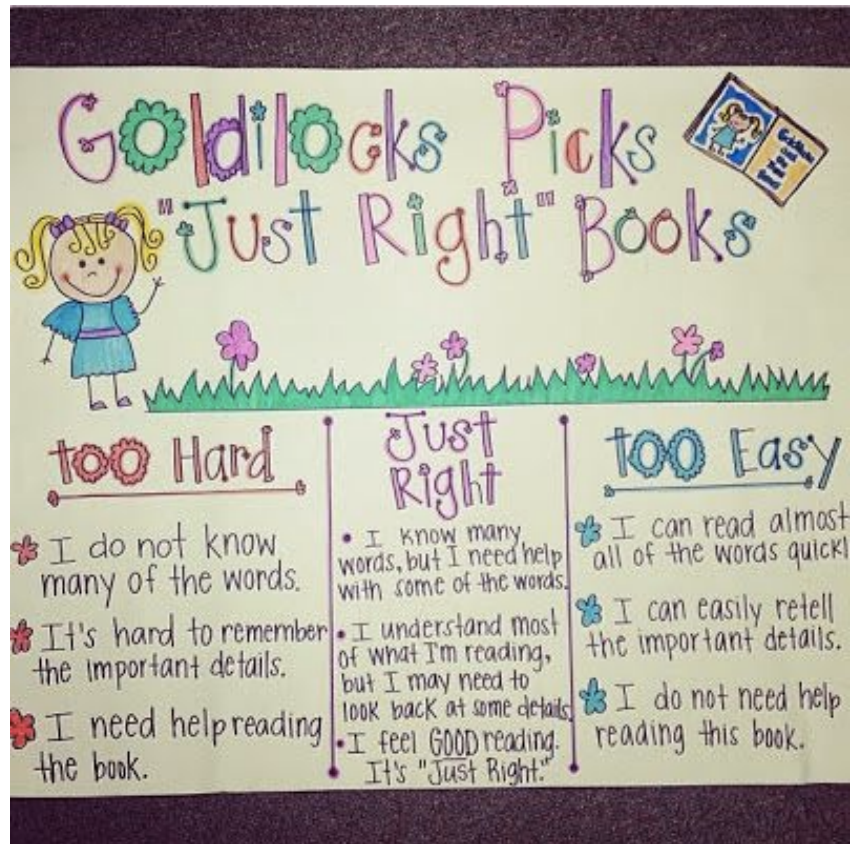 Goldilocks Picks
"Just Right" Books
too Hard
I do not know
many of the words.
It's hard to remember
the important details.
I need help reading
the book.
Just
Right
• I know many
words, but I need help
with some of the words.
• I understand most
of what I'm reading,
but I may need to
look back at some details
• I feel GOOD reading.
It's "Just Right."
too Easy
I can read almost
all of the words quickl
I can easily retell
the important details.
I do not need help
reading this book.